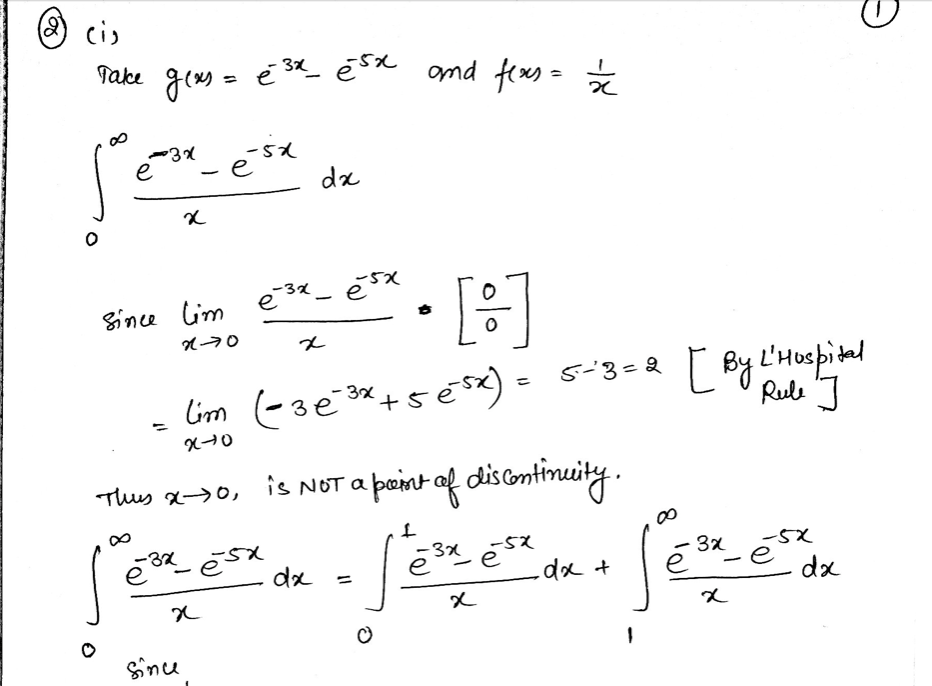 ① 
② (i)
Take g(x) = e^{-3x} - e^{-5x} and f(x) = 1/x
∫_0^∞ (e^{-3x} - e^{-5x})/x dx
Since lim_{x→0} (e^{-3x} - e^{-5x})/x [0/0]
= lim_{x→0} (-3e^{-3x} + 5e^{-5x}) = 5-3 = 2 [By L'Hospital Rule]
Thus x→0, is NOT a point of discontinuity.
∫_0^∞ (e^{-3x} - e^{-5x})/x dx = ∫_0^1 (e^{-3x} - e^{-5x})/x dx + ∫_1^∞ (e^{-3x} - e^{-5x})/x dx
Since